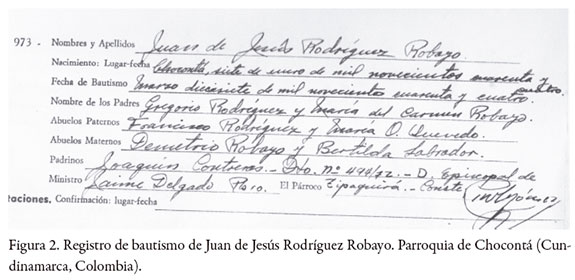 973 - Nombres y Apellidos Juan de Jesús Rodríguez Robayo.
Nacimiento: Lugar-fecha Chocontá, siete de enero de mil novecientos cuarenta y cuatro.
Fecha de Bautismo Marzo diecisiete de mil novecientos cuarenta y cuatro.
Nombre de los Padres Gregorio Rodríguez y María del Carmen Robayo.
Abuelos Paternos Francisco Rodríguez y María O. Quevedo.
Abuelos Maternos Demetrio Robayo y Bertilda Labrador.
Padrinos Joaquín Contreras.- Dto. Nº 494/82.- D. Episcopal de
Ministro Jaime Delgado Pbro. El Párroco Zipaquirá.- Conste
taciones. Confirmación: lugar-fecha
Figura 2. Registro de bautismo de Juan de Jesús Rodríguez Robayo. Parroquia de Chocontá (Cun-
dinamarca, Colombia).